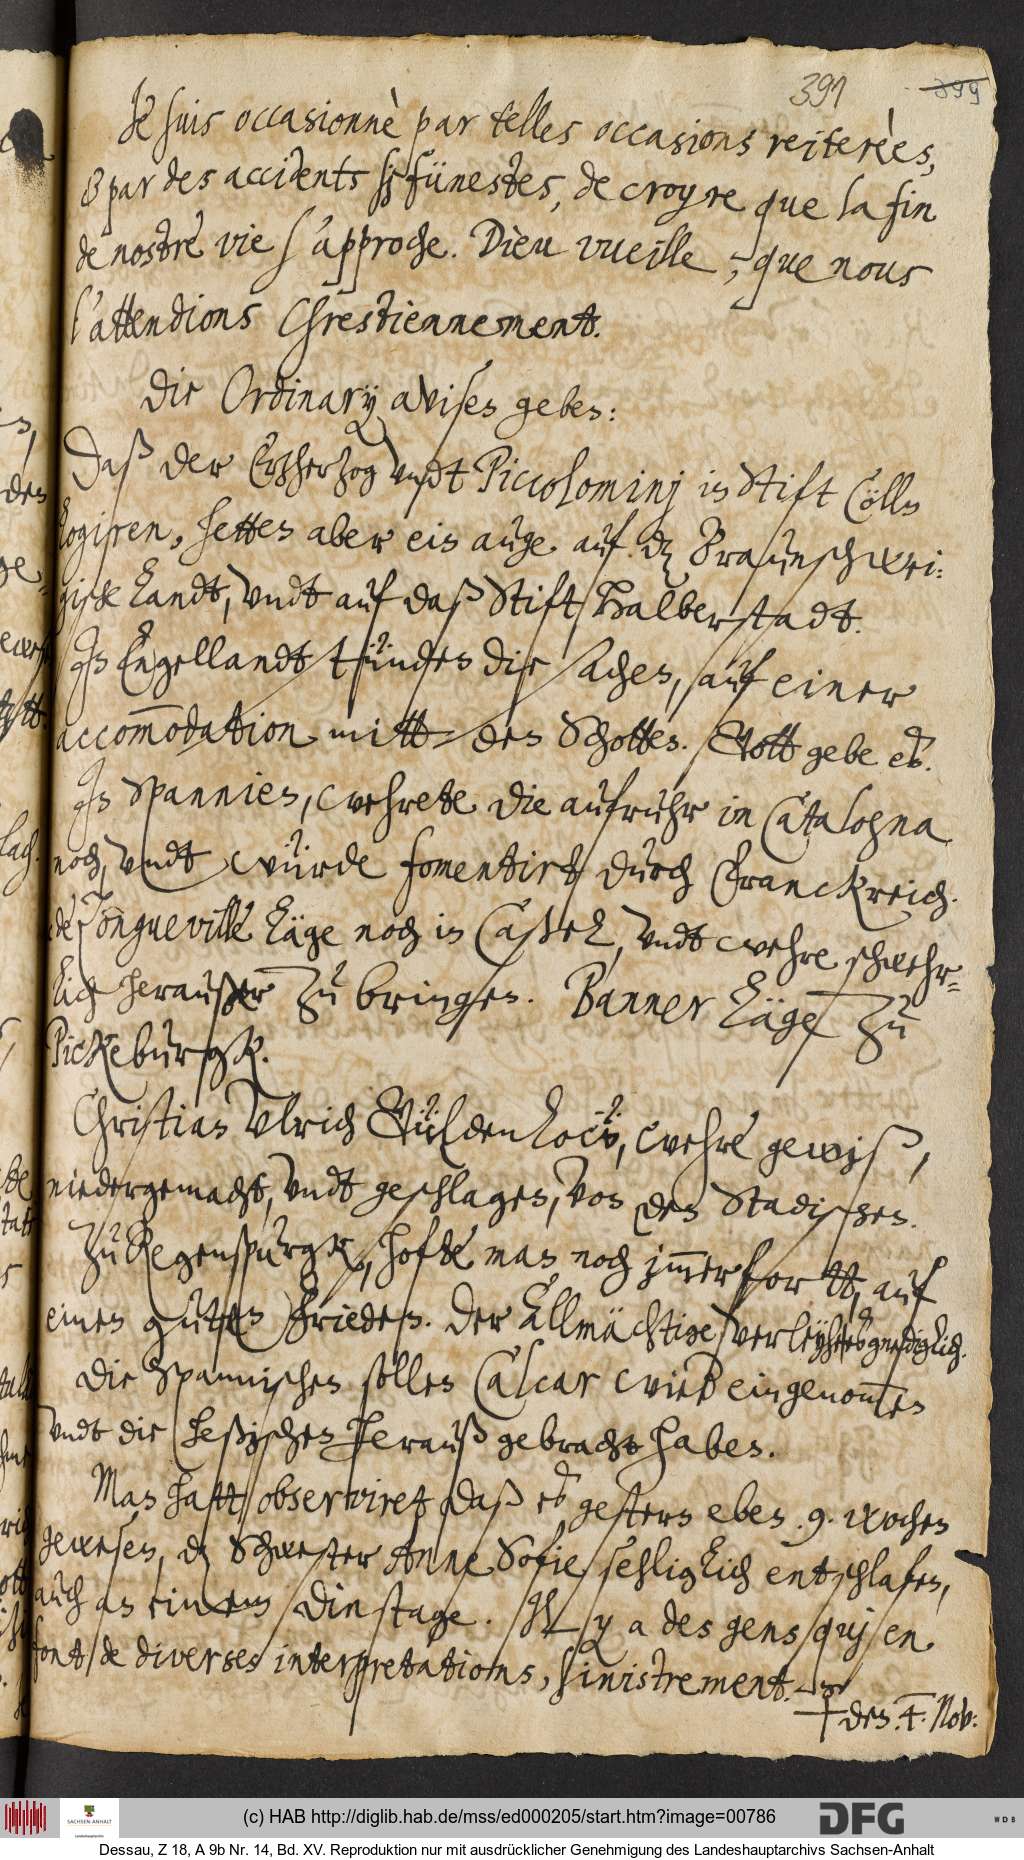 391
399
Je suis occasionnè par telles occasions reiterèes,
& par des accidents sj fünestes, de croyre que la fin
de nostre vie s'approche. Dieu vueille, que nous
l'attendions Chrestiennement.
Die Ordinarÿ avisen geben:
Daß der Ertzhertzog undt Piccolominj in Stift Cölln
logiren, hetten aber ein auge auf dz Braunschwei-
gische Landt, undt auf daß Stift Halberstadt.
In Engellandt stünden die sachen, auf einer
accommodation mitt den Schotten. Gott gebe es.
In Spannien, wehrete die aufruhr in Catalogna
noch, undt würde fomentirt durch Franckreich.
de Longueville läge noch in Caßel, undt wehre schwehr-
lich heraußer zu bringen. Banner läge zu
Pickeburgk.
Christian Ulrich Güldenlöw, wehre gewiß,
niedergemacht, undt geschlagen, von den Stadischen.
Zu Regenspurgk, hofte man noch immerfortt, auf
einen guten frieden. Der Allmächtige verleyhe es gnediglich.
Die Spannischen sollen Calcar wieder eingenommen
undt die Heßischen herauß gebracht haben.
Man hatt observiret daß es gestern eben .9. wochen
gewesen, dz Schwester Anne Sofie sehliglich entschlafen,
auch an einem Dienstage. Il y a des gens quj en
font de diverses interpretations, sinistrement.
den .4. Nov:
(c) HAB http://diglib.hab.de/mss/ed000205/start.htm?image=00786
SACHSEN-ANHALT
DFG
WDB
Dessau, Z 18, A 9b Nr. 14, Bd. XV. Reproduktion nur mit ausdrücklicher Genehmigung des Landeshauptarchivs Sachsen-Anhalt